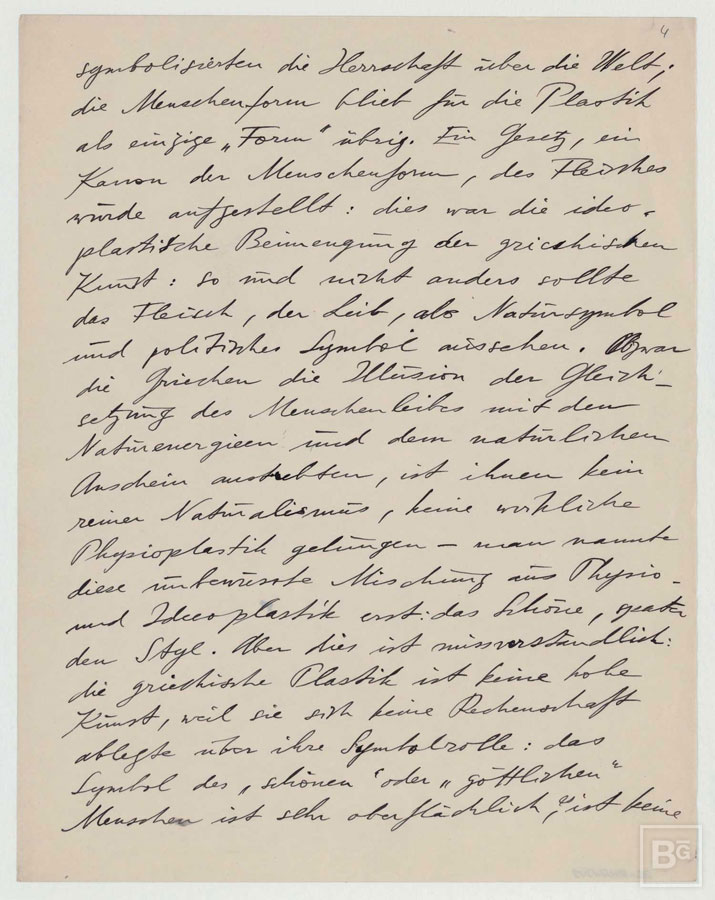 4
symbolisierten die Herrschaft über die Welt;
die Menschenform blieb für die Plastik
als einzige „Form" übrig. Ein Gesetz, ein
Kanon der Menschenform, des Fleisches
wurde aufgestellt: dies war die ideo-
plastische Beimengung der griechischen
Kunst: so und nicht anders sollte
das Fleisch, der Leib, als Natursymbol
und politisches Symbol aussehen. Obzwar
die Griechen die Illusion der Gleich-
setzung des Menschenleibes mit den
Naturenergieen und dem natürlichen
Anschein anstrebten, ist ihnen kein
reiner Naturalismus, keine wirkliche
Physioplastik gelungen – man nannte
diese unbewusste Mischung aus Physio-
und Ideoplastik erst: das Schöne, später
den Styl. Aber dies ist missverständlich:
die griechische Plastik ist keine hohe
Kunst, weil sie sich keine Rechenschaft
ablegte über ihre Symbolrolle: das
Symbol des „schönen" oder „göttlichen"
Menschen ist sehr oberflächlich, ist keine
BG